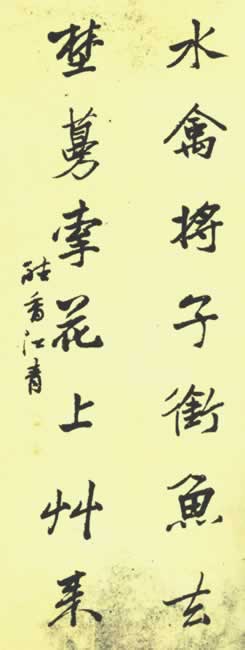 水禽將子銜魚去
埜蔓牽花上艸来
香江青